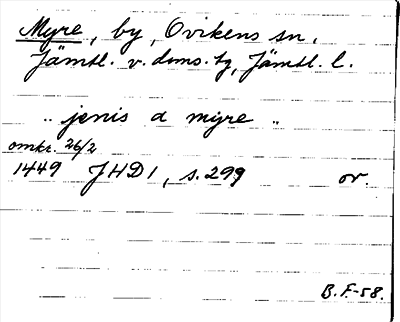 Myre, by, Ovikens sn.
Jämtl. v. doms. tg, Jämtl. l.
"jenis a myre"
omkr. 26/2
1449 JHD 1, s. 299 or.
B.F-58.